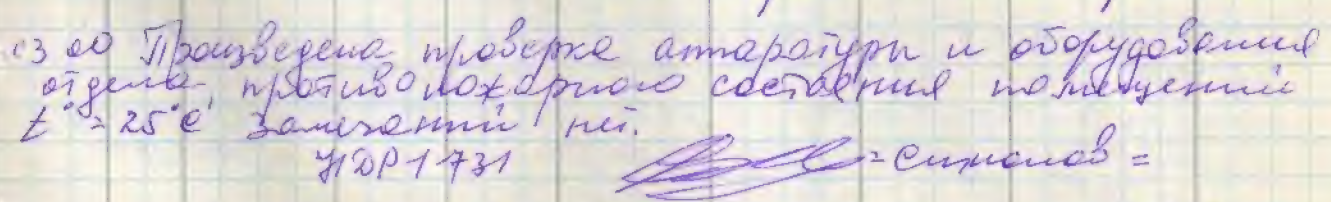 03 00 Произведена проверка аппаратуры и оборудования
отдела, противопожарного состояния помещений
t° = 25°C замечаний нет.
НДР 1731 = Симонов =